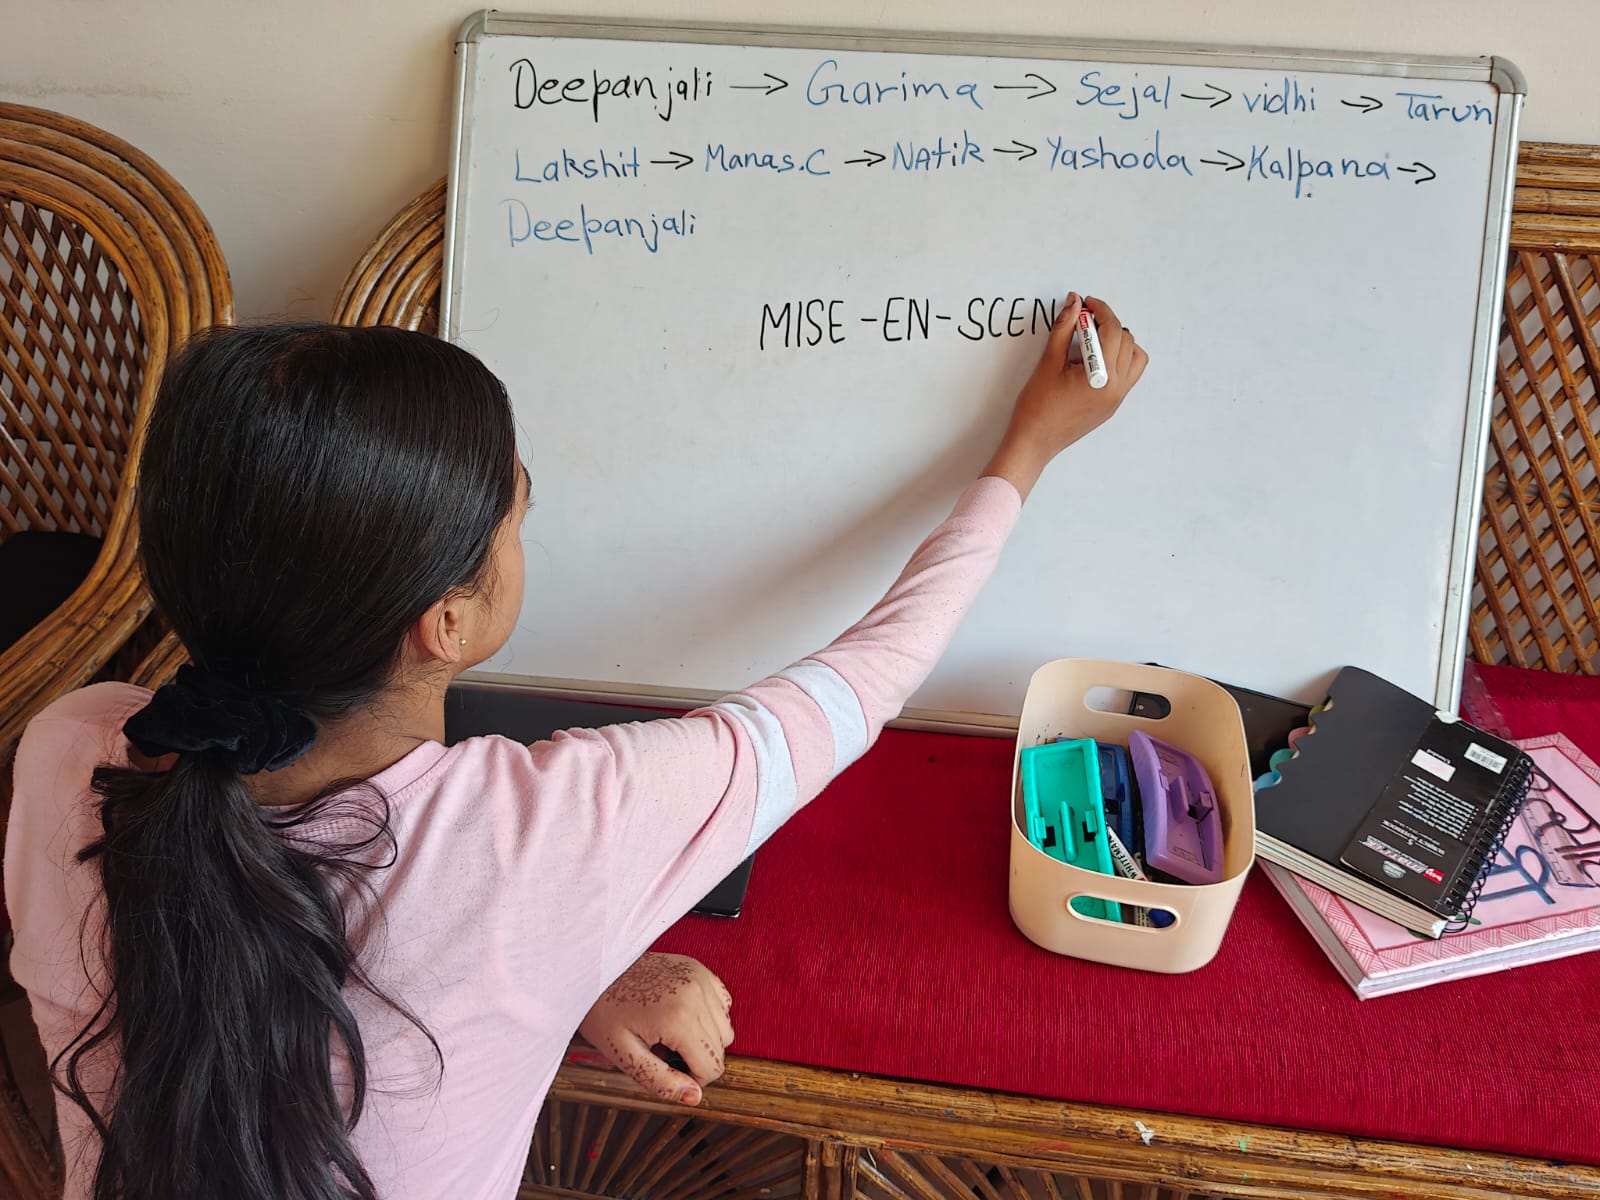 Deepanjali → Garima → Sejal → vidhi → Tarun
Lakshit → Manas.C → NAtik → Yashoda → Kalpana →
Deepanjali
MISE-EN-SCEN
WHITEMA